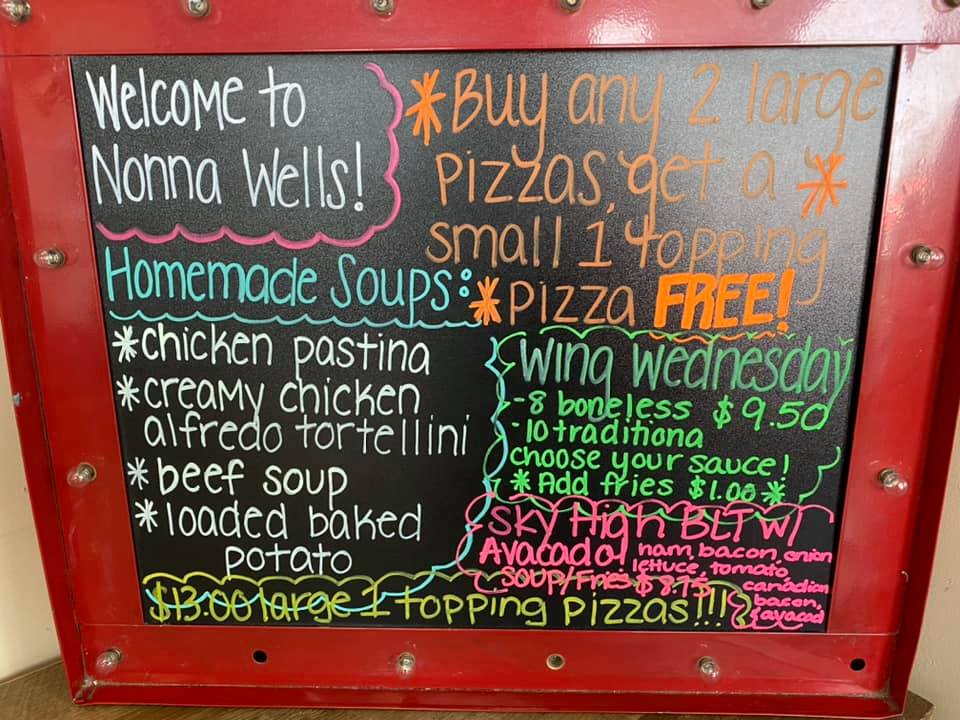 Welcome to
Nonna Wells!
*Buy any 2 large
pizzas, get a *
small 1 topping
*pizza FREE!
Homemade Soups:
*chicken pastina
*creamy chicken
alfredo tortellini
*beef soup
*loaded baked
potato
Wing Wednesday
-8 boneless $9.50
-10 traditiona
choose your sauce!
*Add fries $1.00*
Sky High BLT w/
Avacado! ham, bacon, onion
lettuce, tomato
soup/Fries $8.75 canadian
bacon,
avacad
$13.00 large 1 topping pizzas!!!